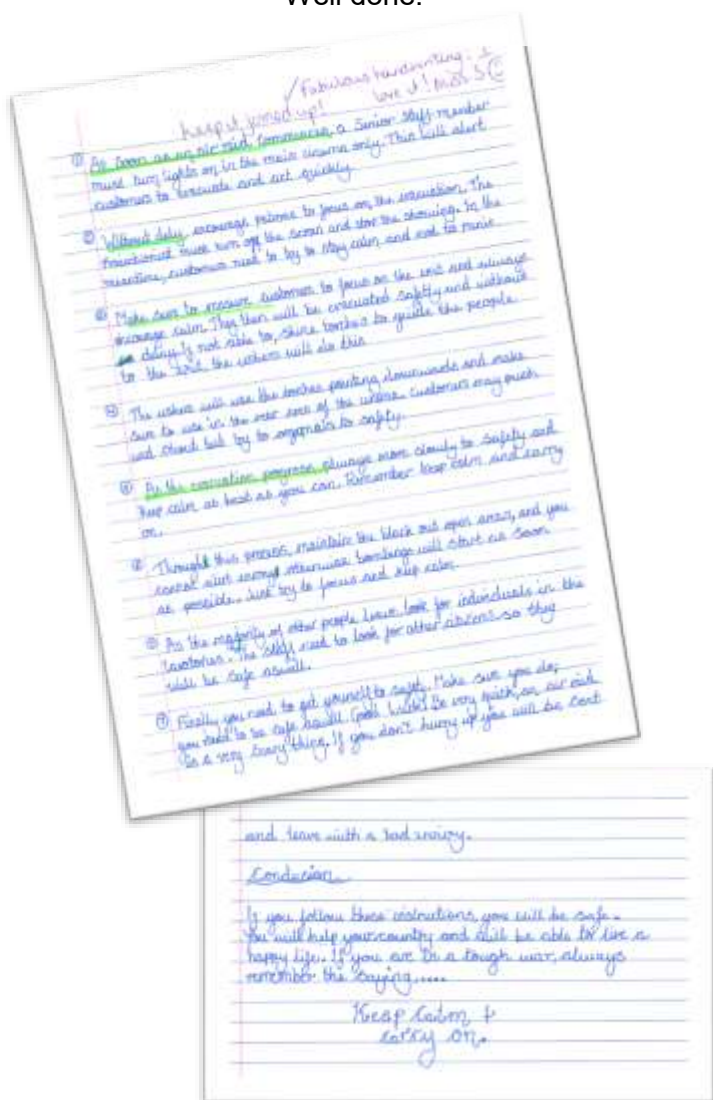 Well done!
Fabulous handwriting. I
love it! Miss S
Keep it joined up!
① As soon as an air raid commences, a senior staff member
must turn lights on in the main cinema only. This will alert
customers to evacuate and act quickly.
② Without delay, encourage patrons to focus on the evacuation. The
must turn off the screen and stop the showing. In the
meantime, customers need to try to stay calm and not to panic.
Make sure to reassure customers to focus on the exit and always
encourage calm. They then will be evacuated safely and without
delay. If not able to, shine torches to guide the people
to the exit the ushers will do this
④ The ushers will use the torches pointing downwards and make
sure to use in the rear end of the
and shout but try to to safety.
⑤ As the evacuation progress, always move slowly to safety and
keep calm as best as you can. Remember keep calm and carry
on.
⑥ Throught this process, maintain the black out open areas, and you
cannot alert enemy otherwise will start as soon
as possible. Just try to focus and keep calm.
As the majority of other people leave look for individuals in the
lavatories. The staff need to look for other citizens so they
will be safe aswell.
Finally you need to get yourself to safety. Make sure you do,
you need to be safe aswell. Good luck! Be very quick, an air raid
is a very scary thing. If you don't hurry up you will be
and leave with a bad injury.
If you follow these instructions you will be safe.
You will help your country and will be able to live a
happy life. If you are in a tough war, always
remember the saying.....
Keep calm +
carry on.